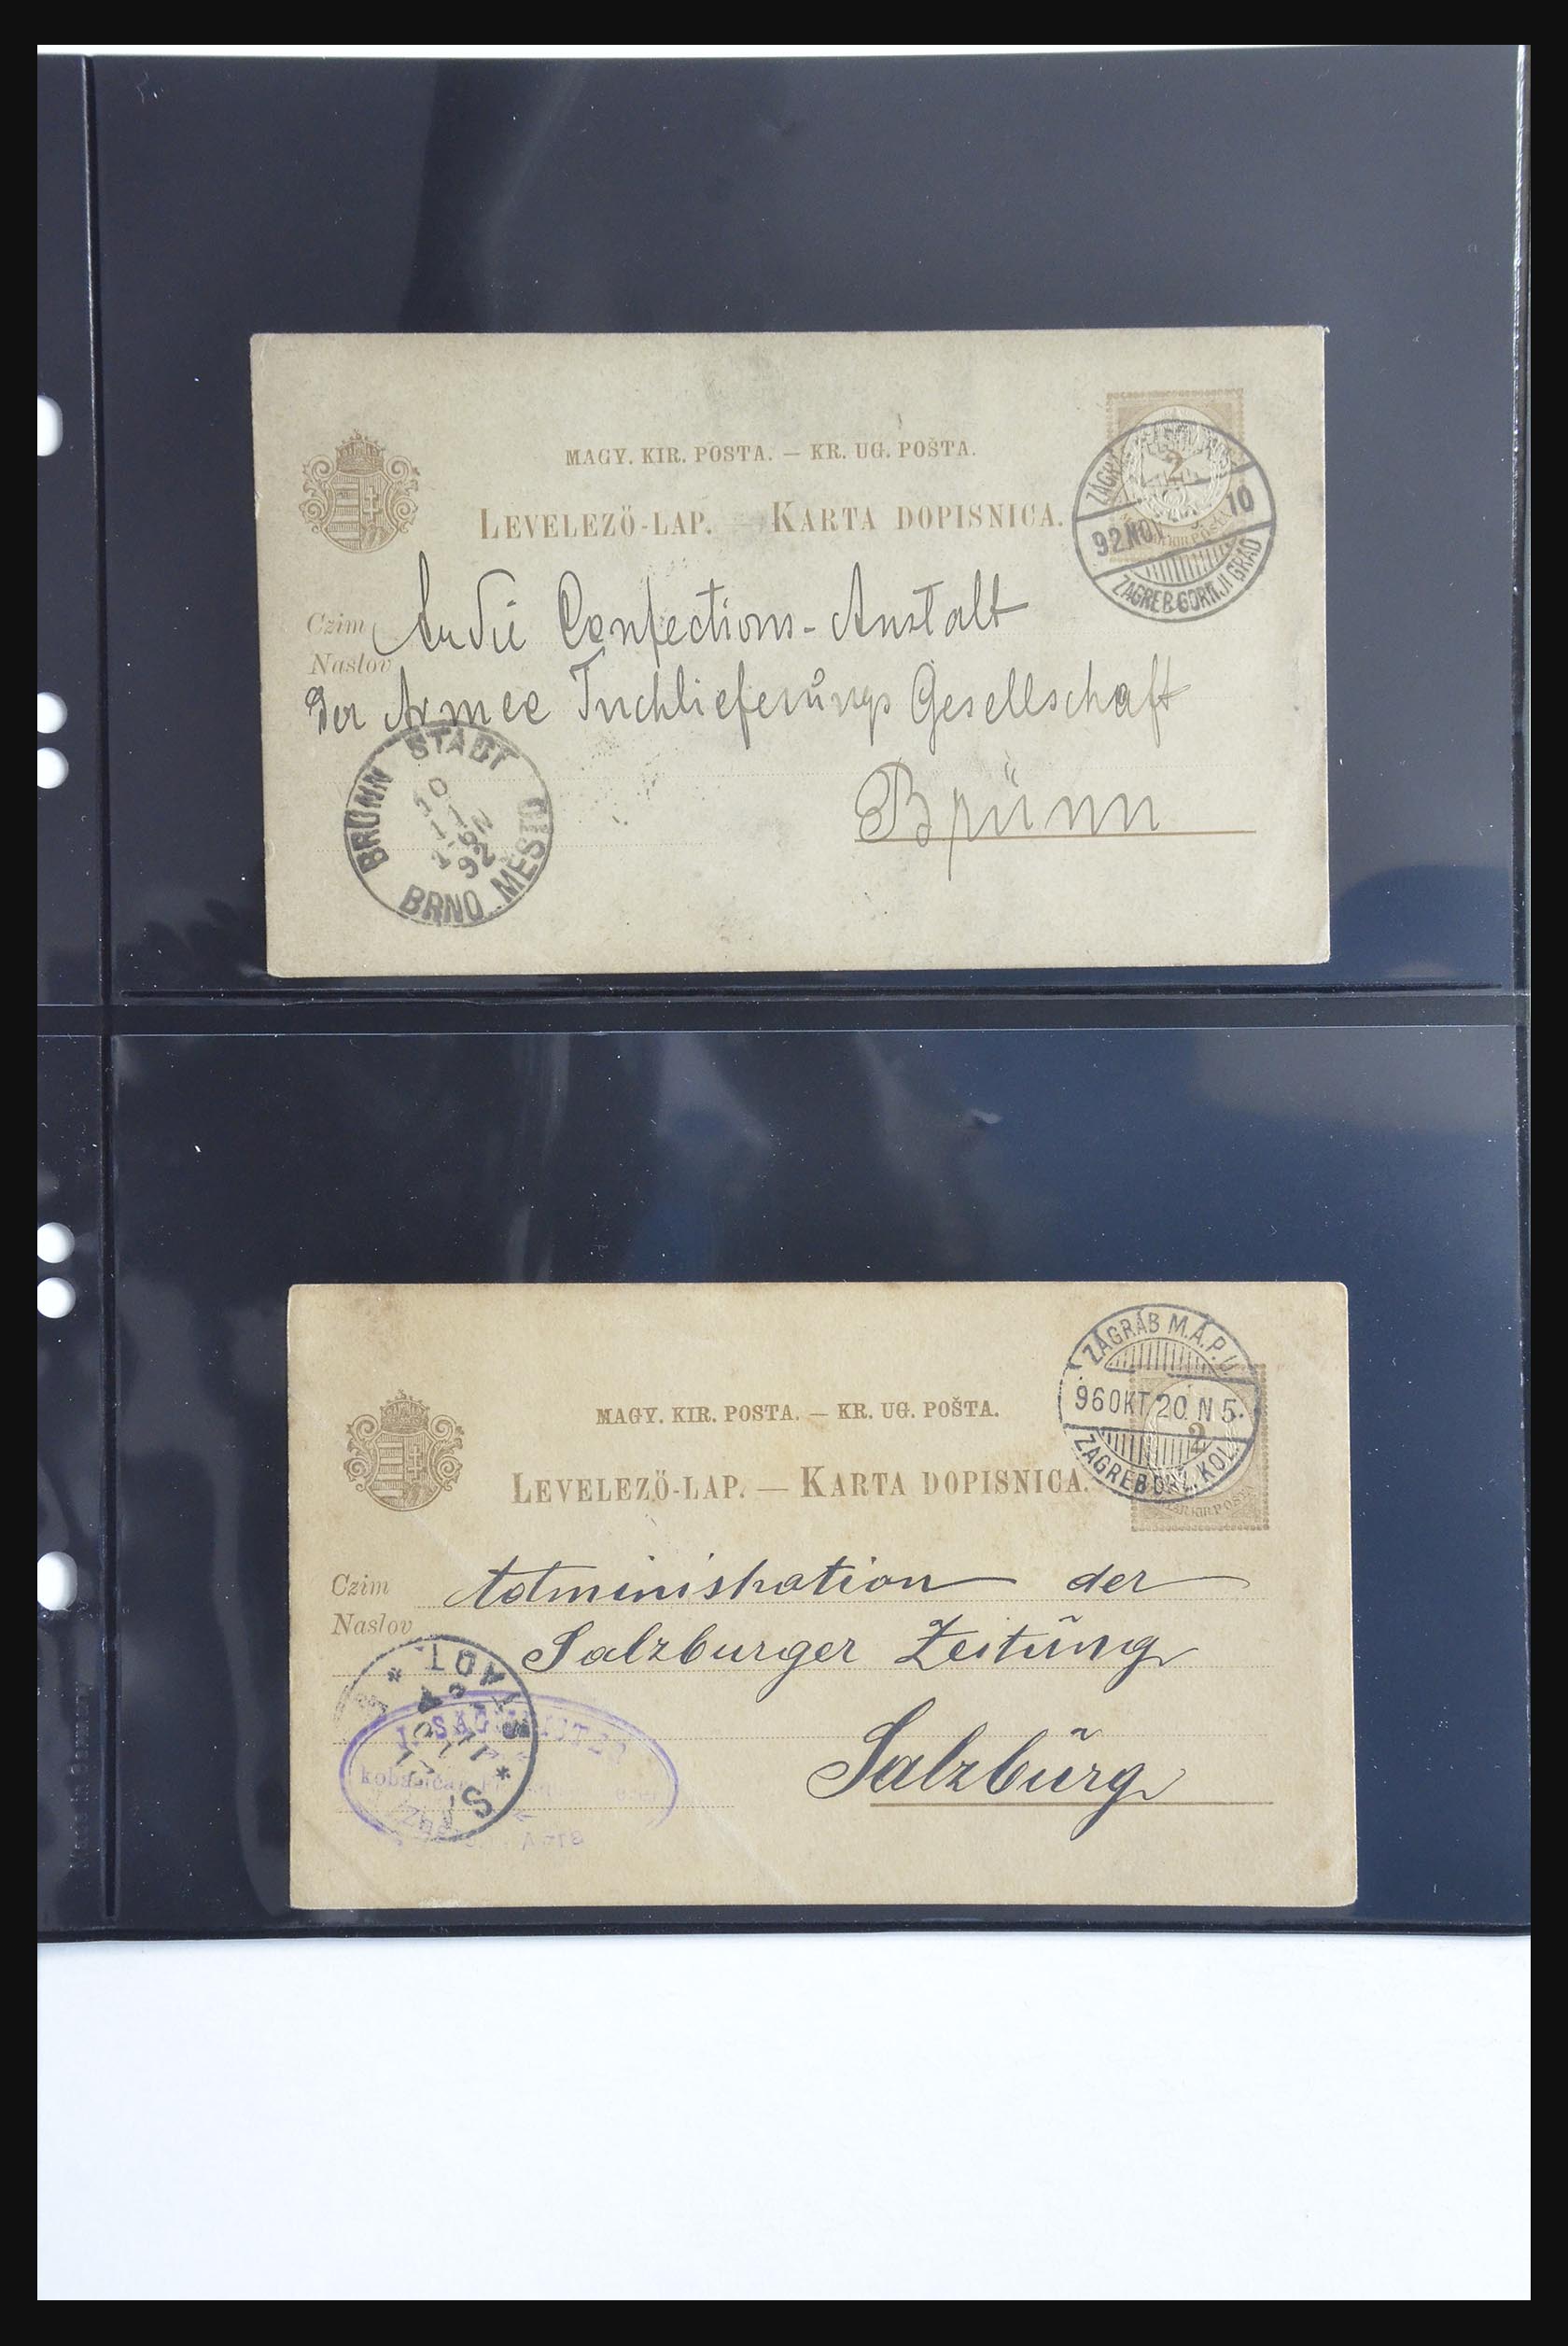 MAGY. KIR. POSTA. — KR. UG. POŠTA.
LEVELEZŐ-LAP. — KARTA DOPISNICA.
2
92 NOV 10
ZAGREB GORNJI GRAD
Czim
Naslov
An die Confections-Anstalt
der Armee Tuchlieferungs Gesellschaft
Brünn
BRÜNN STADT
10
11
92
BRNO MESTO
MAGY. KIR. POSTA. — KR. UG. POŠTA.
LEVELEZŐ-LAP. — KARTA DOPISNICA.
ZÁGRÁB M.Á.P.U.
96 OKT 20 N 5
2
ZAGREB DRŽ. KOL.
Czim
Naslov
Administration der
Salzburger Zeitung
Salzburg
STADT